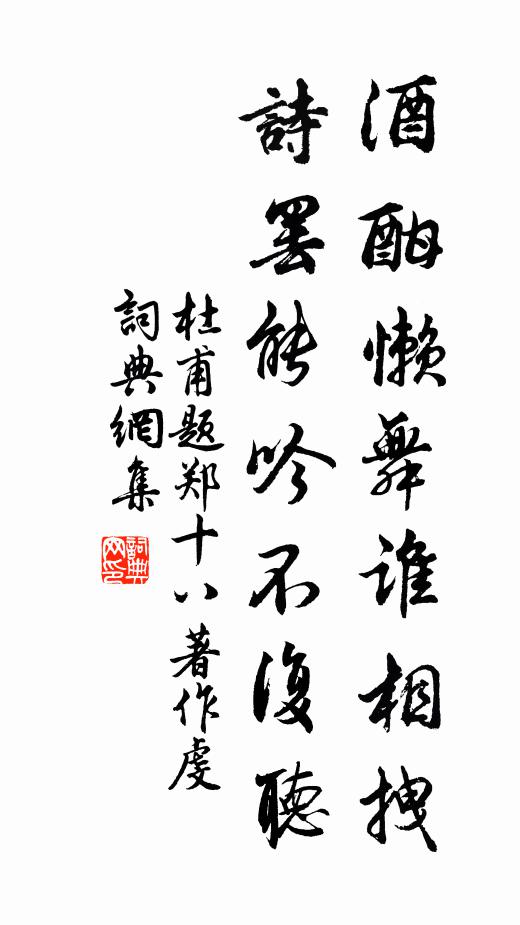 酒酣懒舞谁相拽
詩罢能吟不復聽
杜甫题郑十八著作虔
詞典網集
詞典网印